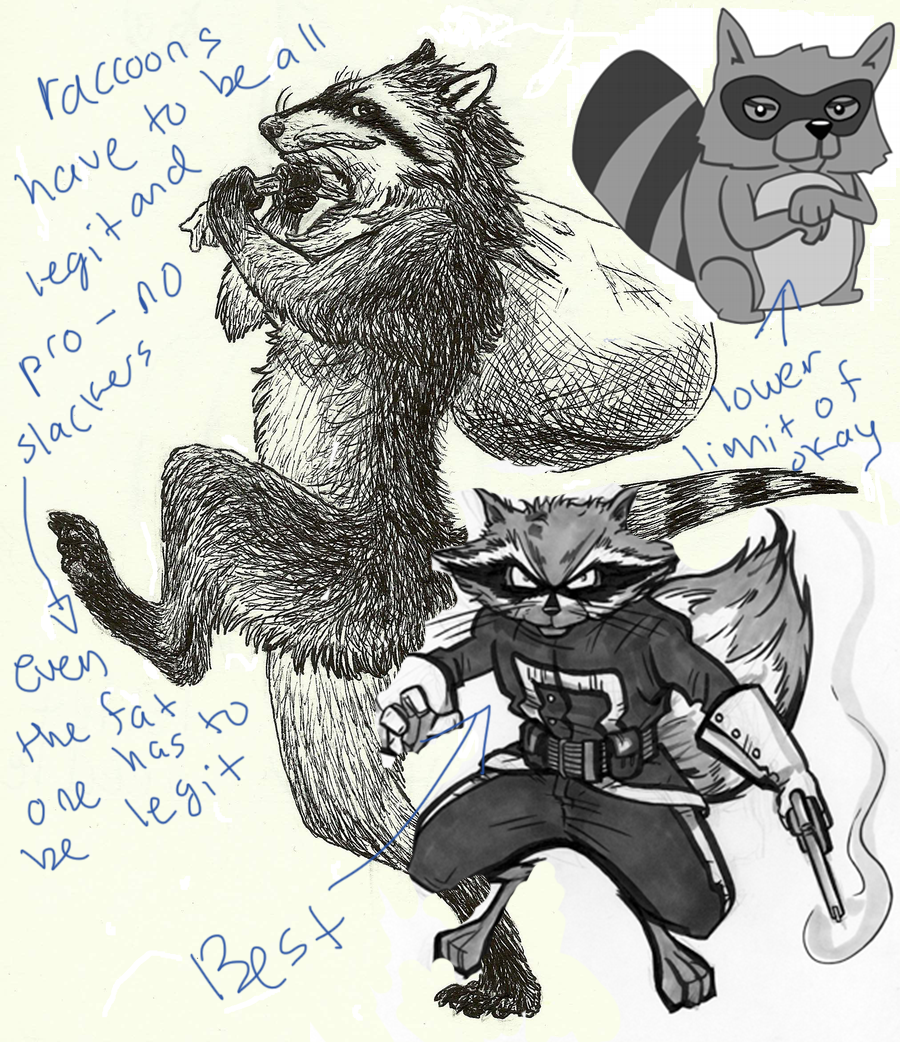 raccoons
have to be all
legit and
pro - no
slackers
even
the fat
one has to
be legit
lower
limit of
okay
Best